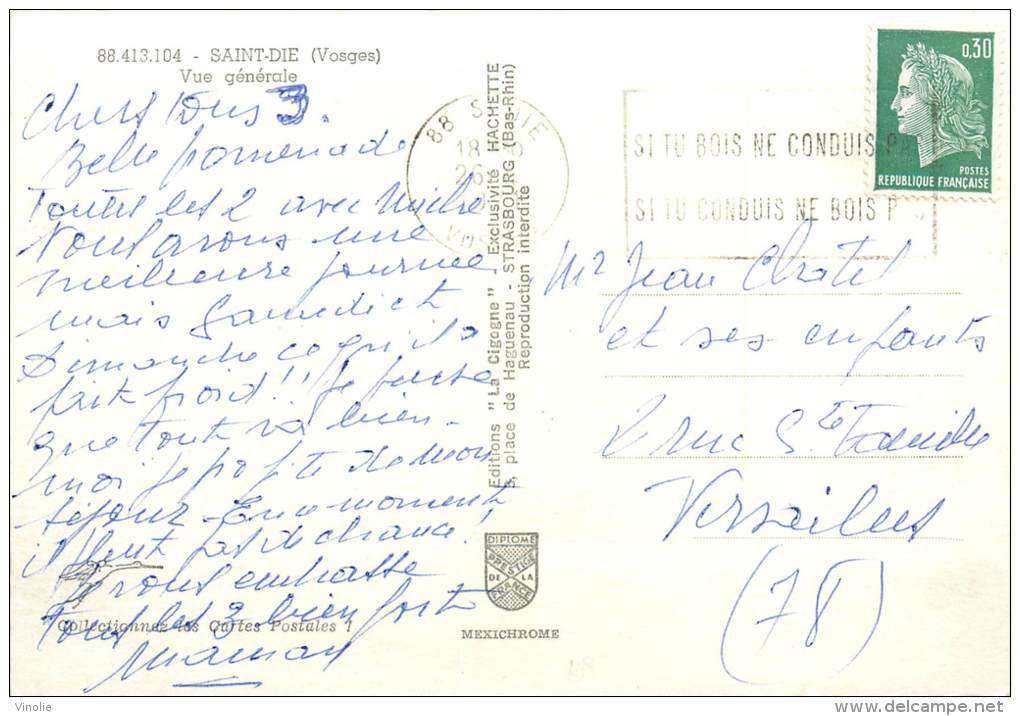 88.413.104 - SAINT-DIE (Vosges)
Vue générale
Chers tous 3.
Belle promenade
Toutes les 2 avec
Nous avons une
meilleure journée
mais samedi et
Dimanche ce qu'il a
fait froid!! Je pense
que tout va bien-
moi je profite de mon
séjour - En ce moment
il pleut pas de chance!
Je vous embrasse
tous les 3 bien fort
Maman
Collectionnez les Cartes Postales !
Editions "La Cigogne" - Exclusivité HACHETTE
place de Haguenau - STRASBOURG (Bas-Rhin)
Reproduction interdite
DIPLOME
PRESTIGE
DE LA
FRANCE
MEXICHROME
88 ST DIE
18
26
VOSGES
SI TU BOIS NE CONDUIS PAS
SI TU CONDUIS NE BOIS PAS
0,30
POSTES
REPUBLIQUE FRANÇAISE
Mr Jean Chatel
et ses enfants
2 rue Ste Famille
Versailles
(78)
Vinolie
delcampe.net